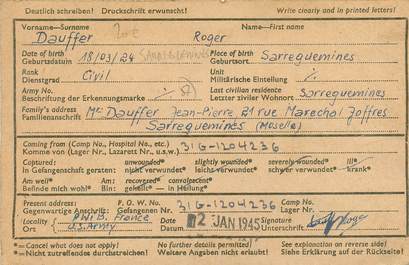 Deutlich schreiben! Druckschrift erwünscht! Write clearly and in printed letters!
Vorname—Surname Name—First name
Dauffer Roger
Date of birth 18/03/24 Place of birth
Geburtsdatum Geburtsort Sarreguemines
Rank Civil Unit
Dienstgrad Militärische Einteilung
Army No. Last civilian residence
Beschriftung der Erkennungsmarke Letzter ziviler Wohnort Sarreguemines
Family's address Mr Dauffer Jean-Pierre 21 rue Marechal Joffres
Familienanschrift Sarreguemines (Moselle)
Coming from (Camp No., Hospital No., etc.)
Komme von (Lager Nr., Lazarett Nr., u.s.w.) 31G-1204236
Captured: unwounded* slightly wounded* severely wounded* ill*
In Gefangenschaft geraten: nicht verwundet leicht verwundet schwer verwundet krank*
Am well* Am: recovered* convalescent*
Befinde mich wohl* Bin: geheilt* — in Heilung*
Present address: P. O. W. No. Camp No.
Gegenwärtige Anschrift: Gefangenen Nr. 31G-1204236 Lager Nr.
Locality P.W.I.B. France Date 2 JAN 1945 Signature
Ort U.S. Army Datum Unterschrift
*= Cancel what does not apply! No further details permitted! See explanation on reverse side!
*= Nicht zutreffendes durchstreichen! Weitere Angaben nicht erlaubt! Siehe Erklärung auf der Rückseite!